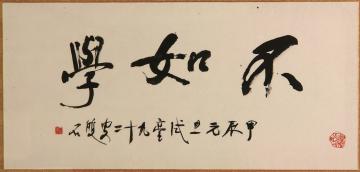 不如學
甲辰元旦試毫九十二叟雙石